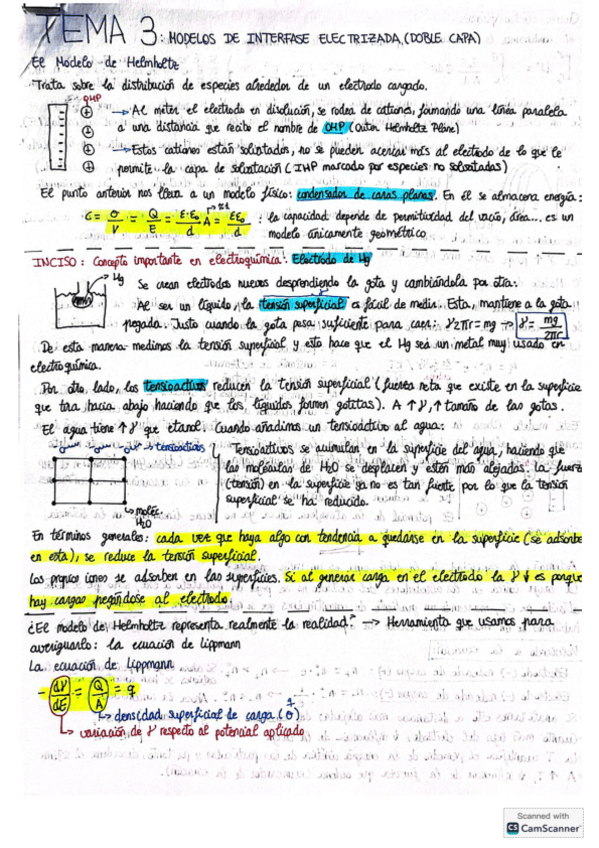 TEMA 3: MODELOS DE INTERFASE ELECTRIZADA (DOBLE CAPA)
El Modelo de Helmholtz
Trata sobre la distribución de especies alrededor de un electrodo cargado.
OHP
→ Al meter el electrodo en disolución, se rodea de cationes, formando una línea paralela
a una distancia que recibe el nombre de OHP (Outer Helmholtz Plane)
→ Estos cationes están solvatados, no se pueden acercar más al electrodo de lo que le
permite la capa de solvatación (IHP marcado por especies no solvatadas)
El punto anterior nos lleva a un modelo físico: condensador de caras planas. En él se almacena energía:
: la capacidad depende de permitividad del vacío, área... es un
modelo únicamente geométrico
INCISO: Concepto importante en electroquímica: Electrodo de Hg
Hg
Se crean electrodos nuevos desprendiendo la gota y cambiándola por otra.
Al ser un líquido, la tensión superficial es fácil de medir. Esta, mantiene a la gota
pegada. Justo cuando la gota pesa suficiente para caer: γ2πr = mg → γ = mg/2πr
De esta manera medimos la tensión superficial y esto hace que el Hg sea un metal muy usado en
electroquímica.
Por otro lado, los tensioactivos reducen la tensión superficial (fuerza neta que existe en la superficie
que tira hacia abajo haciendo que los líquidos formen gotitas). A ↑γ, ↑ tamaño de las gotas.
El agua tiene ↑γ que etanol. Cuando añadimos un tensioactivo al agua:
→ tensioactivos
Tensioactivos se acumulan en la superficie del agua, haciendo que
las moléculas de H2O se desplacen y estén más alejadas. La fuerza
(tensión) en la superficie ya no es tan fuerte por lo que la tensión
superficial se ha reducido.
→ moléc.
H2O
En términos generales: cada vez que haya algo con tendencia a quedarse en la superficie (se adsorbe
en esta), se reduce la tensión superficial.
Los propios iones se adsorben en las superficies. Si al generar carga en el electrodo la γ↓ es porque
hay cargas pegándose al electrodo.
¿El modelo de Helmholtz representa realmente la realidad? → Herramienta que usamos para
averiguarlo: la ecuación de Lippmann
La ecuación de Lippmann
- dγ/dE = Q/A = q
→ densidad superficial de carga (σ)
→ variación de γ respecto al potencial aplicado
Scanned with
CS CamScanner